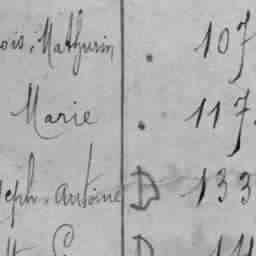 ois, Mathurin . 107
Marie . 117.
seph, Antoine D 133
D 11